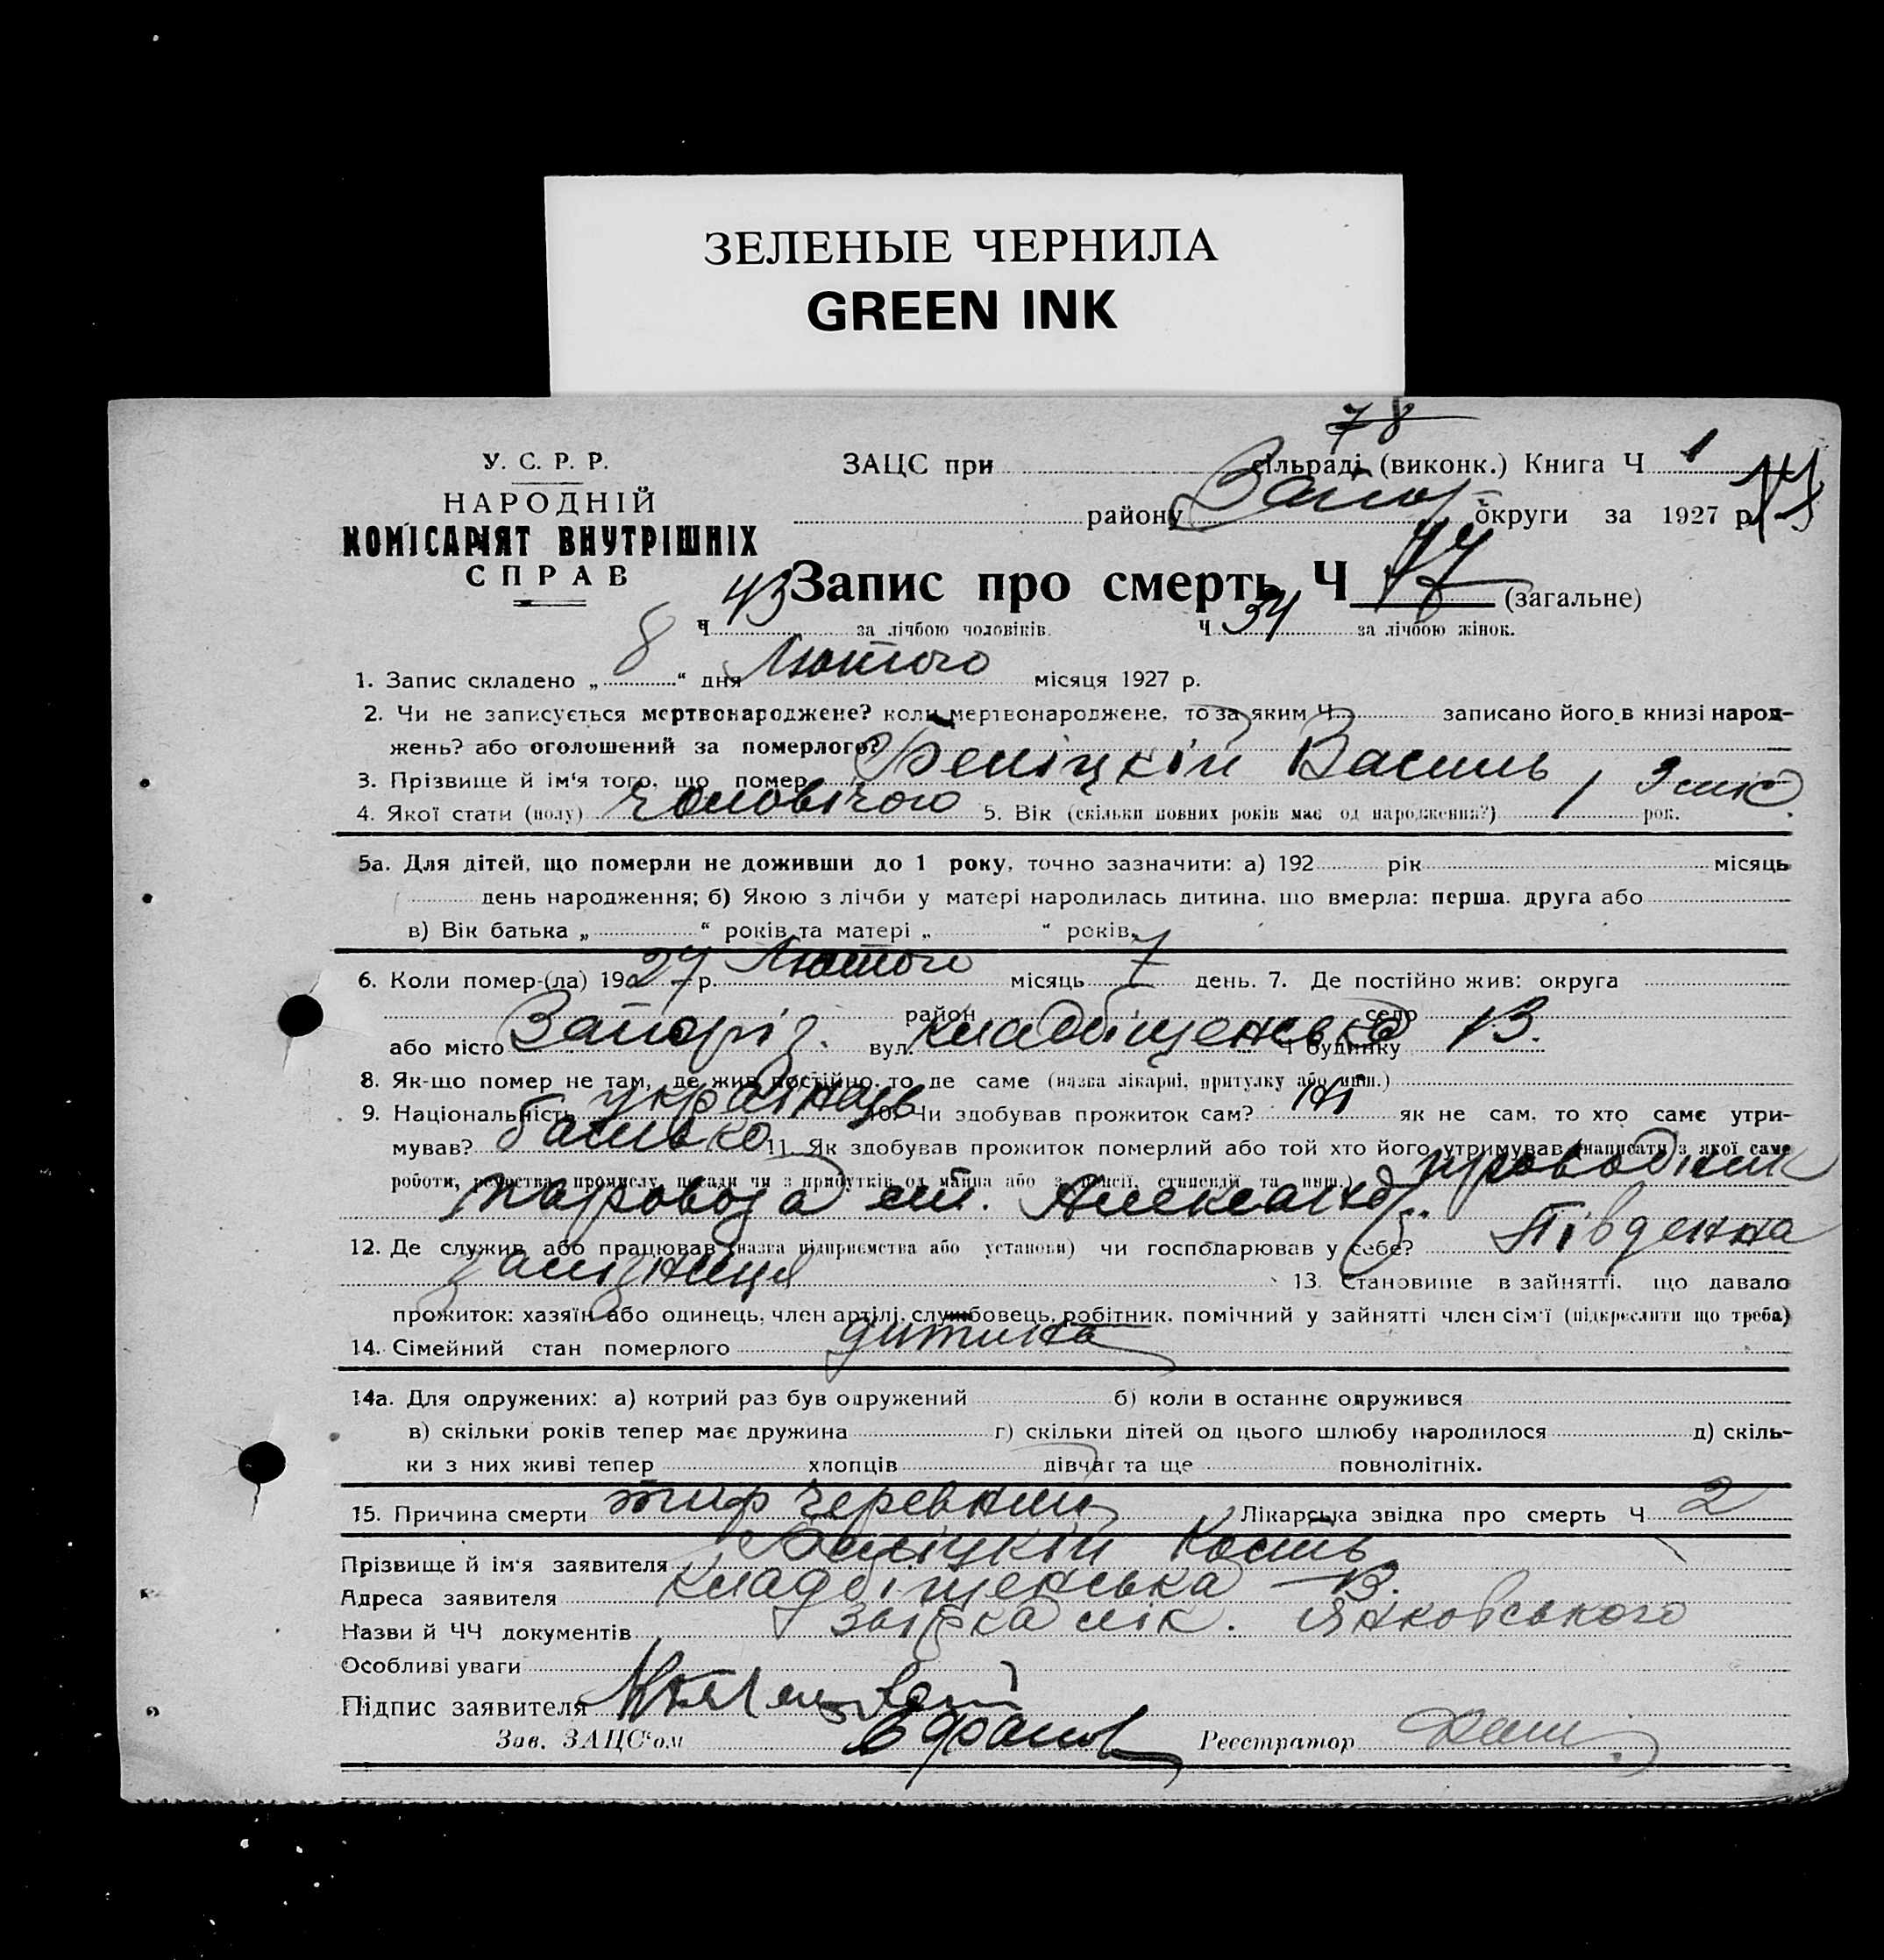 ЗЕЛЕНЫЕ ЧЕРНИЛА
GREEN INK
78
У. С. Р. Р.
НАРОДНІЙ
КОМІСАРІЯТ ВНУТРІШНІХ
СПРАВ
ЗАЦС при сільраді (виконк.) Книга Ч 1
району Запор округи за 1927 р.
Запис про смерть Ч 77 (загальне)
Ч 43 за лічбою чоловіків. Ч 34 за лічбою жінок.
1. Запис складено „ 8 “ дня Лютого місяця 1927 р.
2. Чи не записується мертвонароджене? коли мертвонароджене, то за яким Ч записано його в книзі народ-
жень? або оголошений за померлого?
3. Прізвище й ім'я того, що помер Беліцкій Василь
4. Якої стати (полу) чоловічого 5. Вік (скільки повних років має од народження?) 1 9 міс рок.
5а. Для дітей, що померли не доживши до 1 року, точно зазначити: а) 192 рік місяць
день народження; б) Якою з лічби у матері народилась дитина, що вмерла: перша, друга або
в) Вік батька „ “ років та матері „ “ років.
6. Коли помер-(ла) 1927 р. Лютого місяць 7 день. 7. Де постійно жив: округа
район село
або місто Запоріз. вул. кладбіщенська Ч будинку 13.
8. Як-що помер не там, де жив постійно, то де саме (назва лікарні, притулку або инш.)
9. Національність українець 10. Чи здобував прожиток сам? ні як не сам, то хто саме утри-
мував? батько 11. Як здобував прожиток померлий або той хто його утримував (написати з якої саме
роботи, ремества, промислу, посади чи з прибутків од майна або з пенсії, стипендій та инш.) проводник
паровоза ст. Александр.
12. Де служив або працював (назва підприємства або установи) чи господарював у себе? Південна
залізниця 13. Становище в зайнятті, що давало
прожиток: хазяїн або одинець, член артілі, службовець, робітник, помічний у зайнятті член сім'ї (підкреслити що треба)
14. Сімейний стан померлого дитина
14а. Для одружених: а) котрий раз був одружений б) коли в останнє одружився
в) скільки років тепер має дружина г) скільки дітей од цього шлюбу народилося д) скіль-
ки з них живі тепер хлопців дівчат та ще повнолітніх.
15. Причина смерти тиф черевний Лікарська звідка про смерть Ч 2
Прізвище й ім'я заявителя Беліцкій Кость
Адреса заявителя кладбіщенська 13.
Назви й ЧЧ документів звідка лік. Янковського
Особливі уваги
Підпис заявителя
Зав. ЗАЦС'ом
Реєстратор